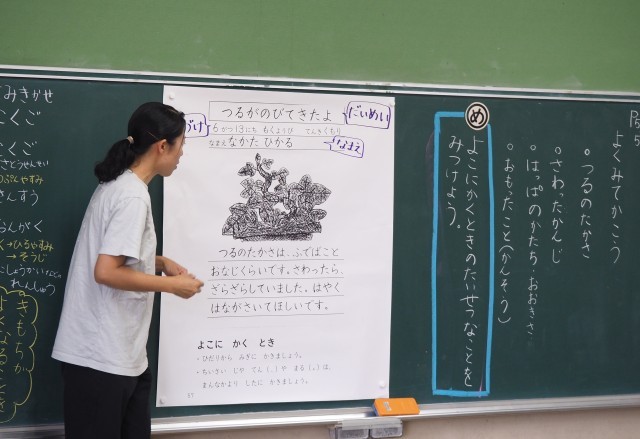 みきかせ
こくご
こくご
さんすう
おんがく
そうじ
れんしゅう
つるがのびてきたよ
だいめい
6がつ13にち もくようび てんきくもり
なまえ なかた ひかる
なまえ
つるのたかさは、ふでばこと
おなじくらいです。さわったら、
ざらざらしていました。はやく
はながさいてほしいです。
よこに かく とき
・ひだりから みぎに かきましょう。
・ちいさい じや てん(、)や まる(。)は、
まんなかより したに かきましょう。
よくみてかこう
・つるのたかさ
・さわったかんじ
・はっぱのかたち・おおきさ
・おもったこと(かんそう)
め
よこにかくときのたいせつなことを
みつけよう。